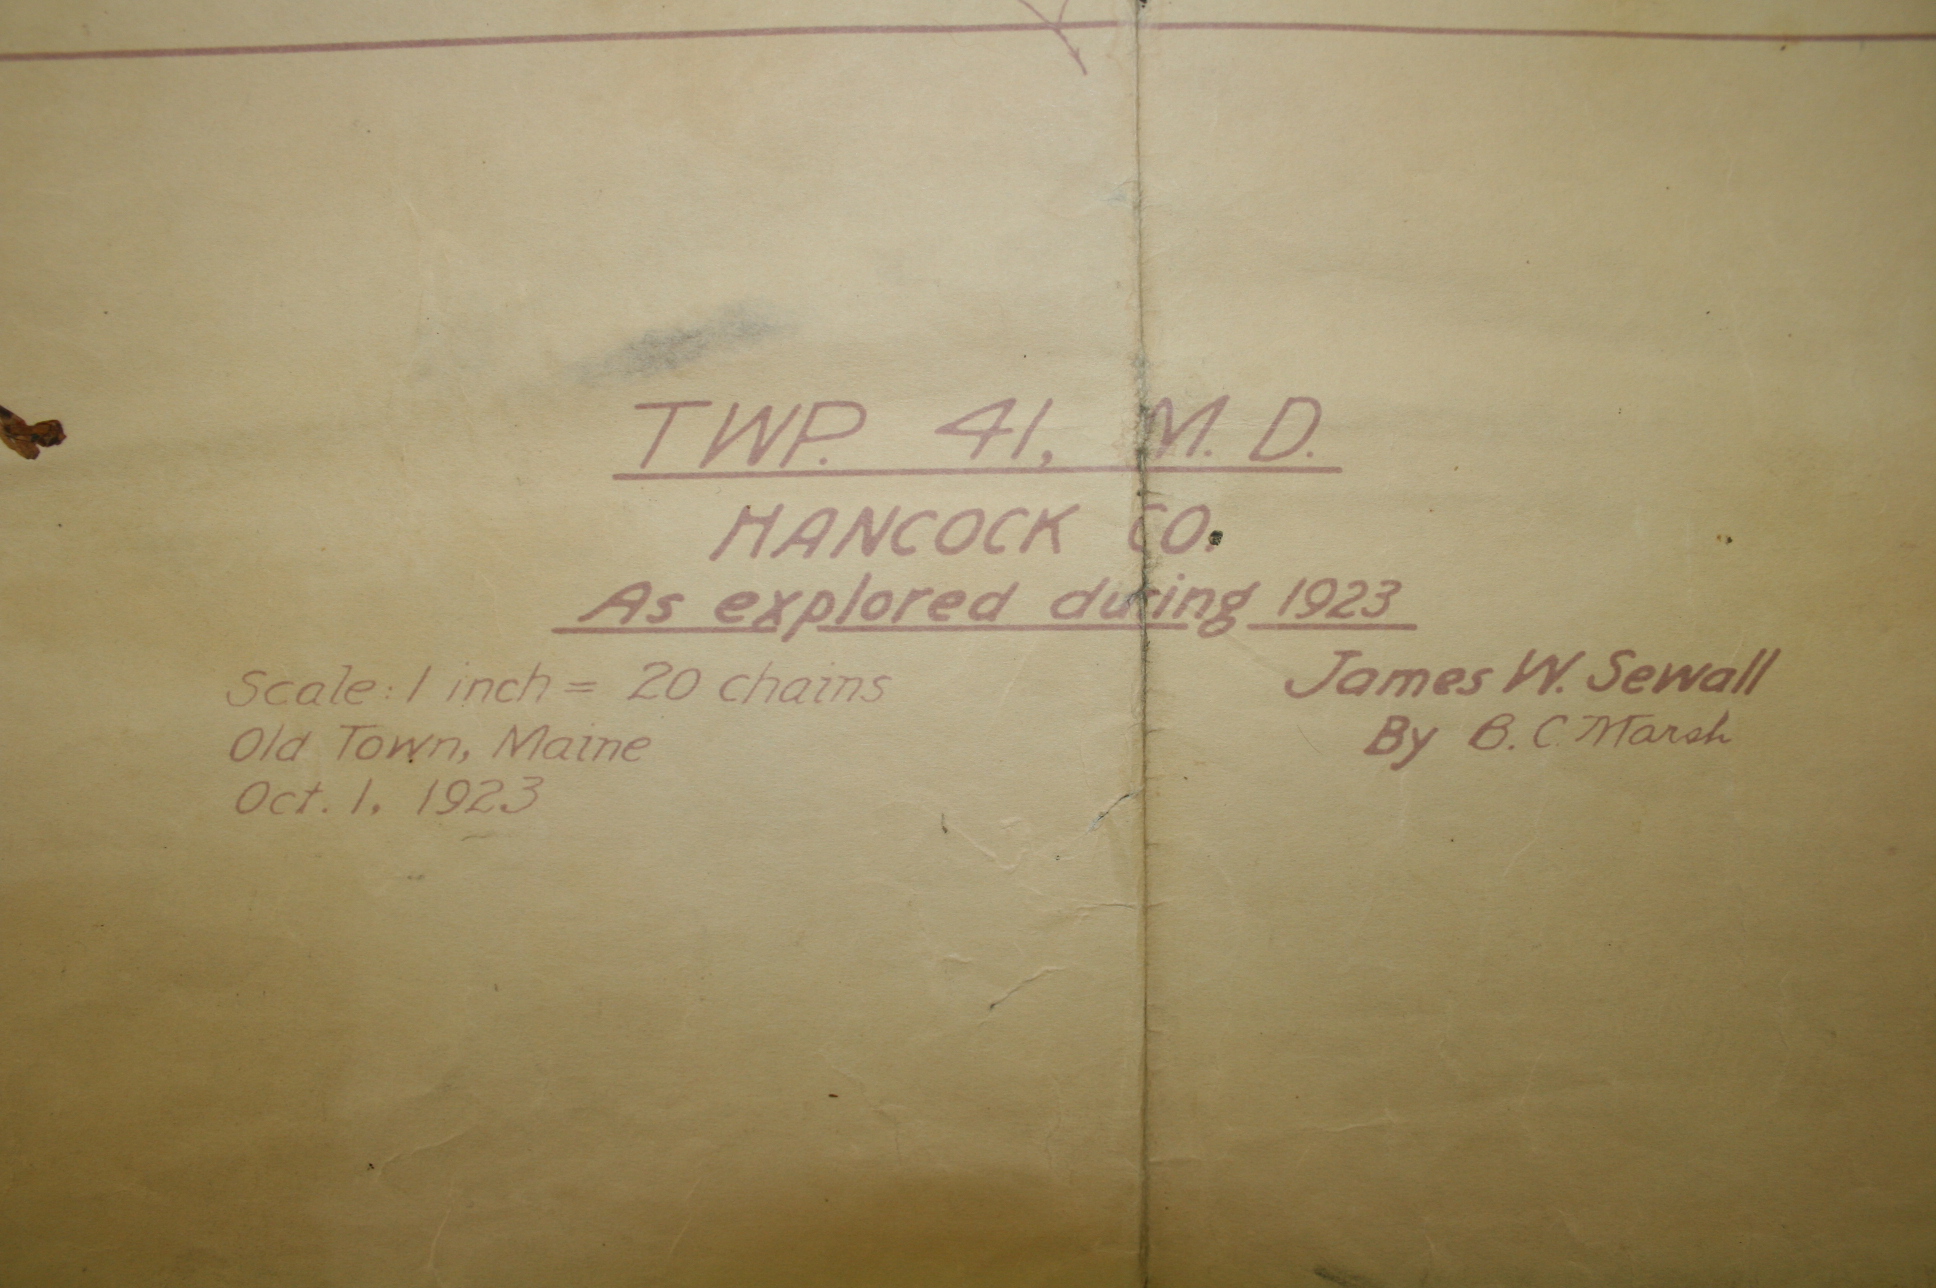 TWP. 41, M. D.
HANCOCK CO.
As explored during 1923
Scale: 1 inch = 20 chains
Old Town, Maine
Oct. 1, 1923
James W. Sewall
By B. C. Marsh